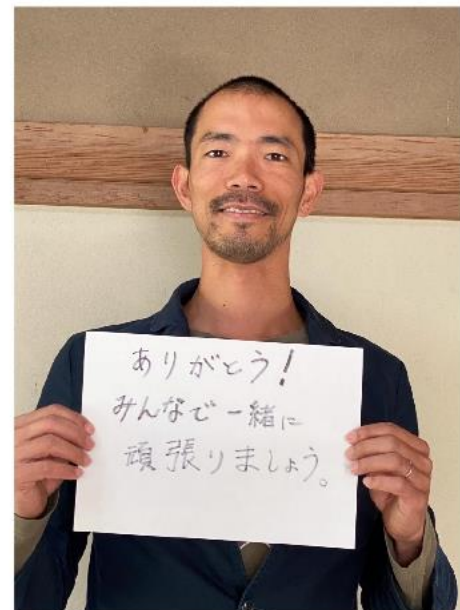 ありがとう!
みんなで一緒に
頑張りましょう。